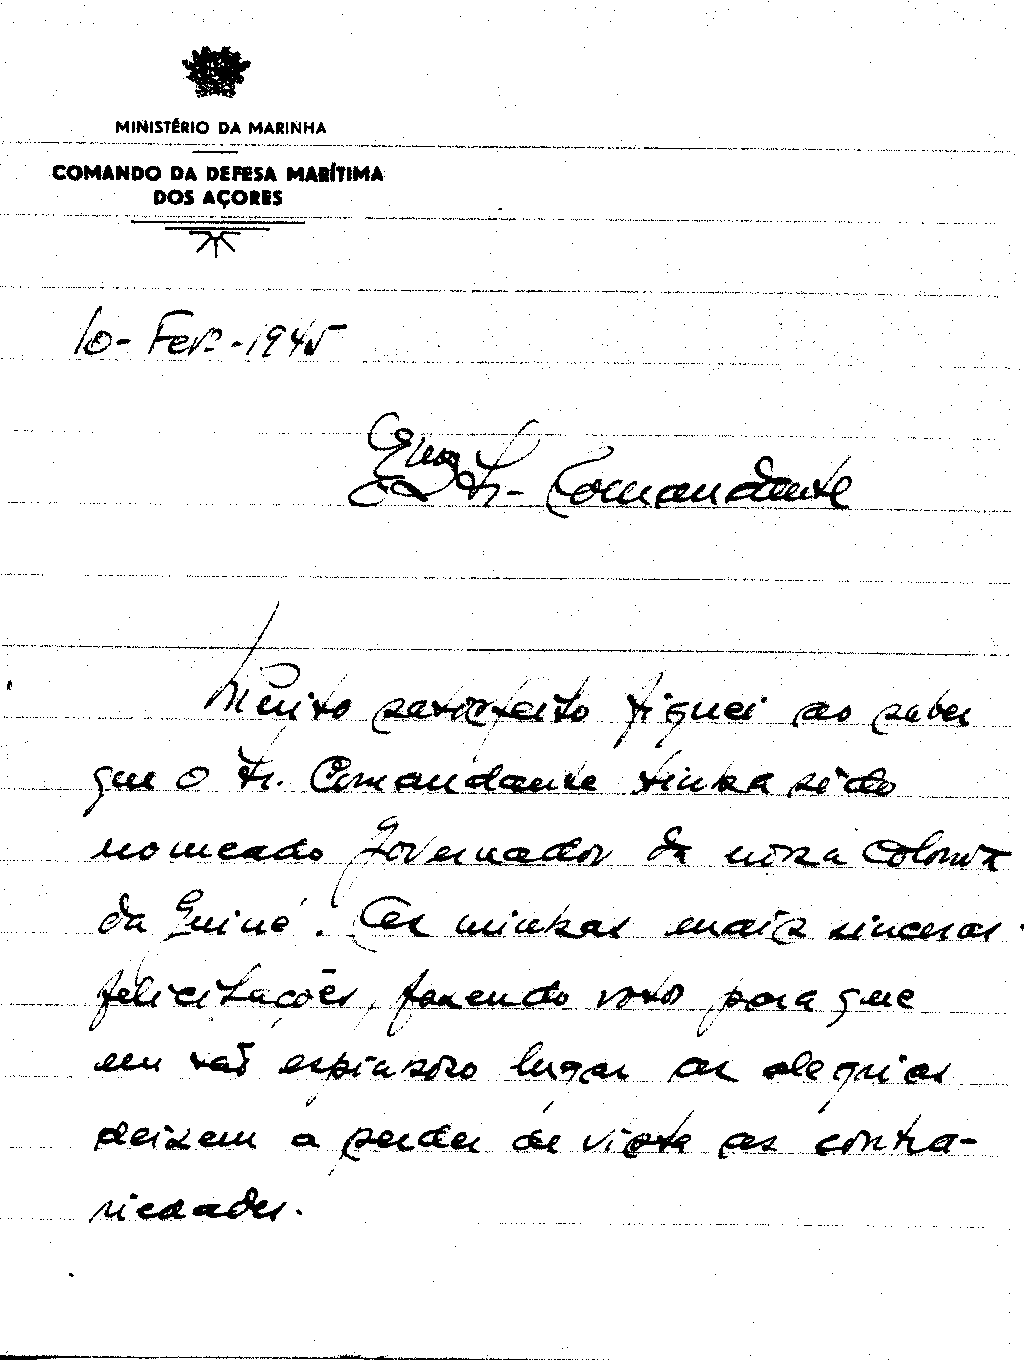 MINISTÉRIO DA MARINHA
COMANDO DA DEFESA MARÍTIMA
DOS AÇORES
10-Fevº-1945
Exmo Sr. Comandante
Muito satisfeito fiquei ao saber
que o Sr. Comandante tinha sido
nomeado Governador da nossa Colonia
da Guiné. As minhas mais sinceras
felicitações, fazendo votos para que
em tão espinhoso lugar as alegrias
deixem a perder de vista as contra-
riedades.